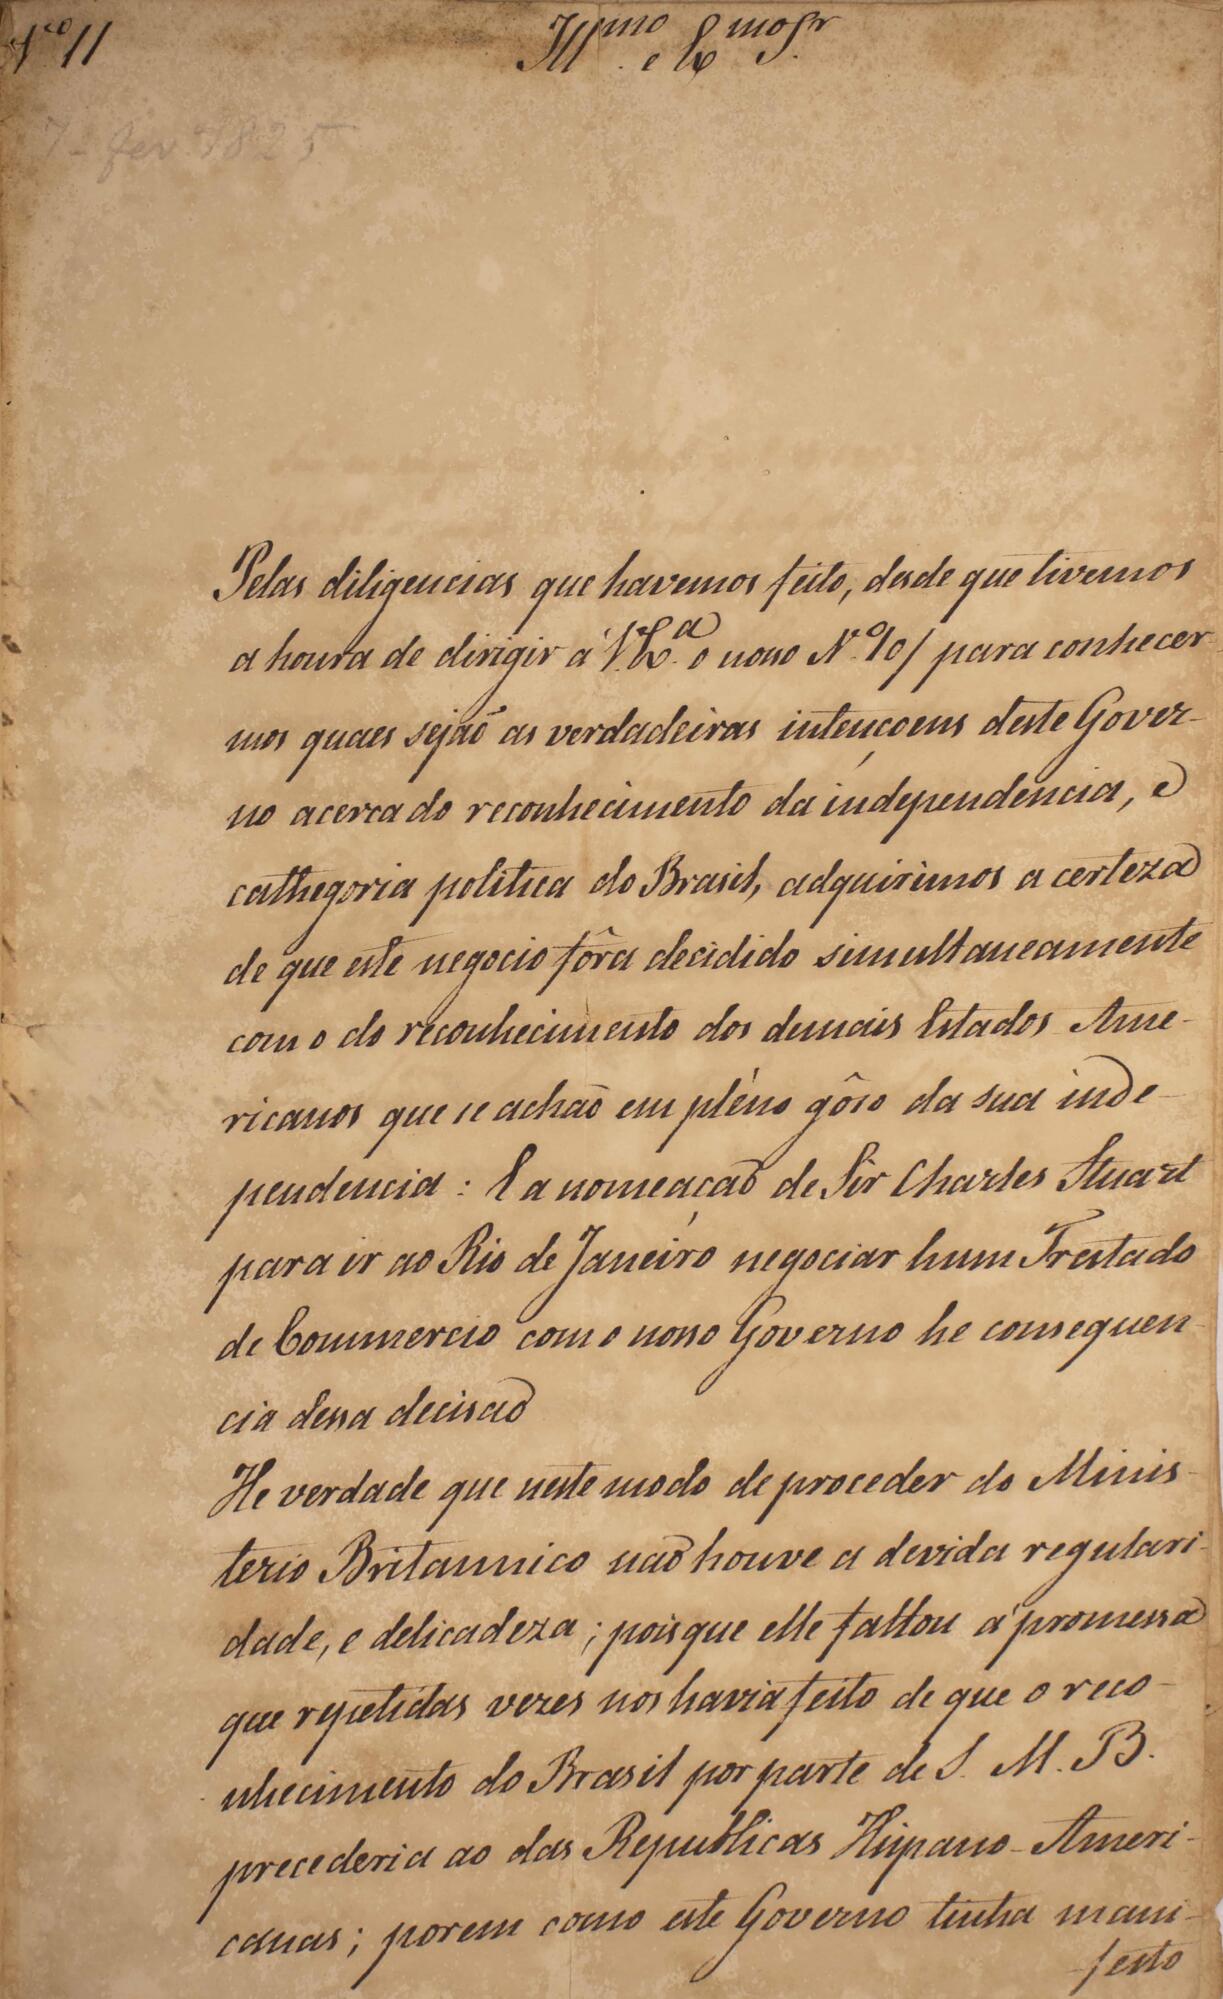 Nº 11
Illmo e Exmo Sr.
7 - fev. 1825
Pelas diligencias que havemos feito, desde que tivemos
a honra de dirigir á V.Exa. o nosso Nº 10/ para conhecer-
mos quaes sejaõ as verdadeiras intençoens deste Gover-
no acerca do reconhecimento da independencia, e
cathegoria politica do Brasil, adquirimos a certeza
de que este negocio fôra decidido simultaneamente
com o do reconhecimento dos demais Estados Ame-
ricanos que se achaõ em pléno gôso da sua inde-
pendencia : E a nomeaçaõ de Sir Charles Stuart
para ir ao Rio de Janeiro negociar hum Trestado
de Commercio com o nosso Governo he consequen-
cia dessa decisaõ
He verdade que neste modo de proceder do Minis-
terio Britannico naõ houve a devida regulari-
dade, e delicadeza ; pois que elle faltou á promessa
que repetidas vezes nos havia feito de que o reco-
nhecimento do Brasil por parte de S. M. B.
precederia ao das Republicas Hispano-Ameri-
canas ; porem como este Governo tinha mani-
festo